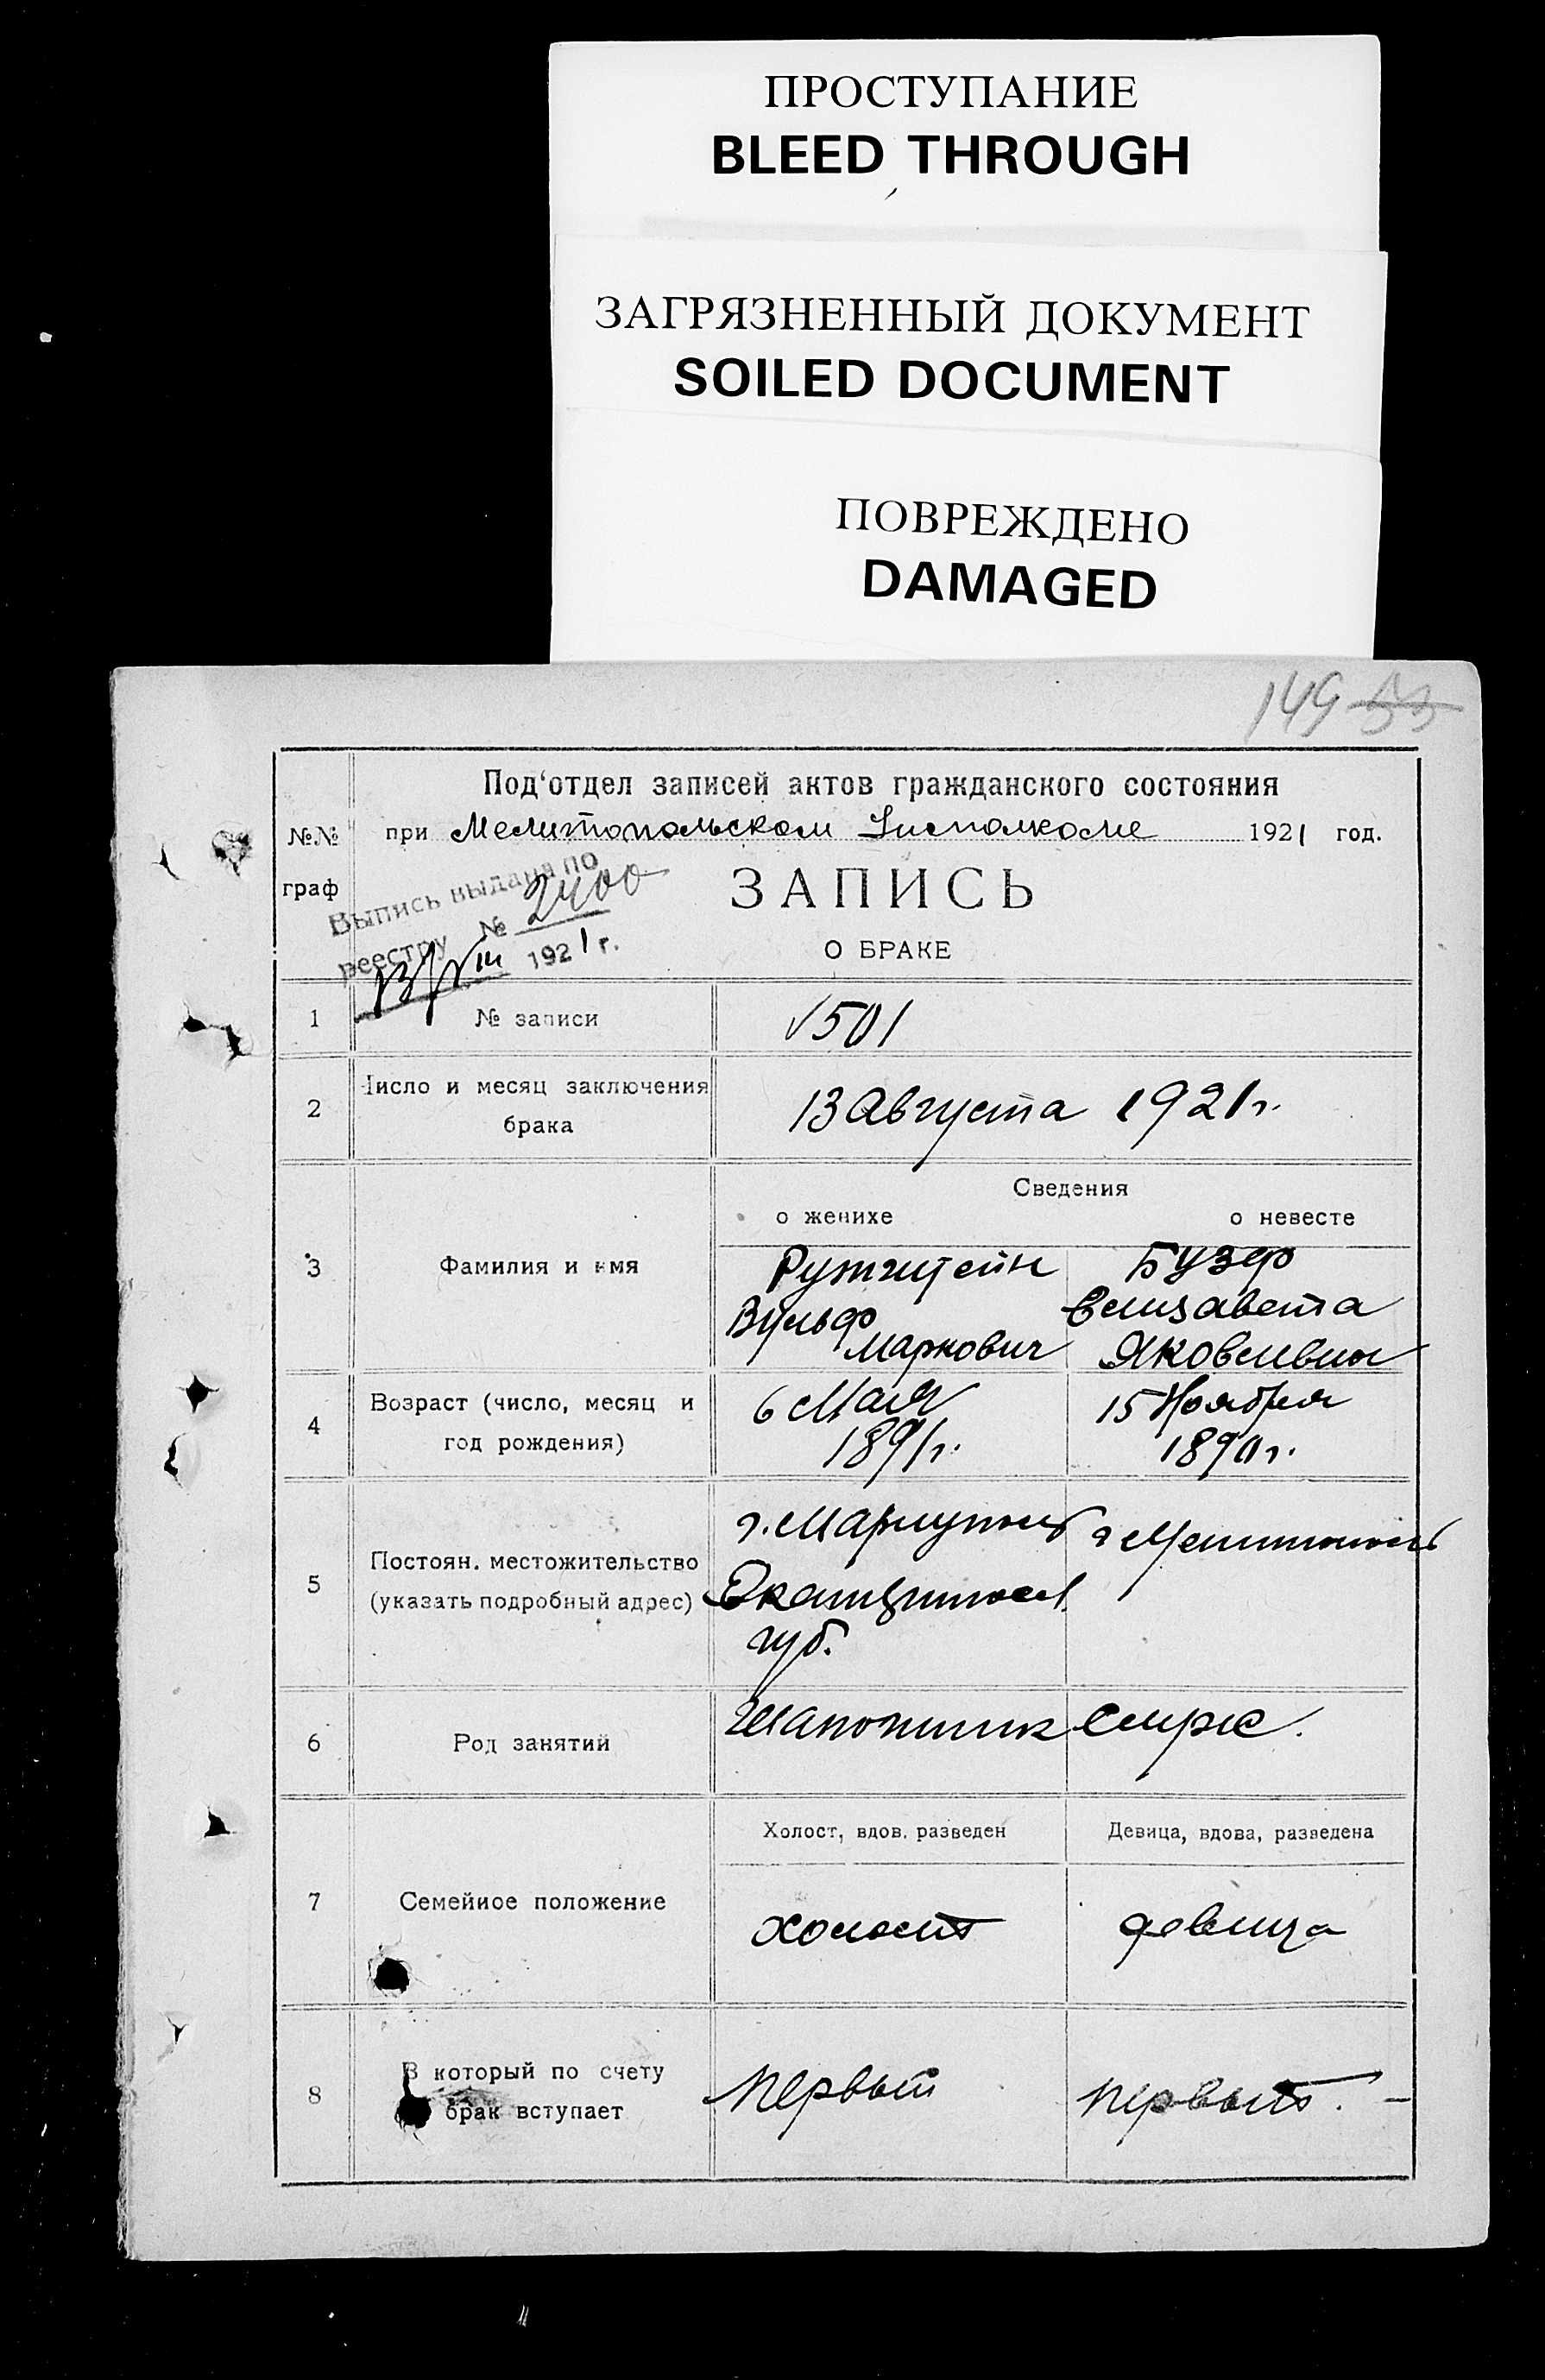 ПРОСТУПАНИЕ
BLEED THROUGH
ЗАГРЯЗНЕННЫЙ ДОКУМЕНТ
SOILED DOCUMENT
ПОВРЕЖДЕНО
DAMAGED
149
Под'отдел записей актов гражданского состояния
№№ граф
при Мелитопольском Исполкоме 1921 год.
Выпись выдана по
реестру № 2400
13/VIII 1921 г.
ЗАПИСЬ
О БРАКЕ
1 № записи 501
2 Число и месяц заключения
брака
13 Августа 1921 г.
Сведения
о женихе о невесте
3 Фамилия и имя
Бузф
Вульф Елизавета
Маркович Яковлевна
4 Возраст (число, месяц и
год рождения)
6 Мая 15 Ноября
1891 г. 1890 г.
5 Постоян. местожительство
(указать подробный адрес)
г. Мариуполь г Мелитополь
Екатериносл.
губ.
6 Род занятий
Шапошник
Холост, вдов. разведен Девица, вдова, разведена
7 Семейное положение
холост девица
8 В который по счету
брак вступает
первый первый.